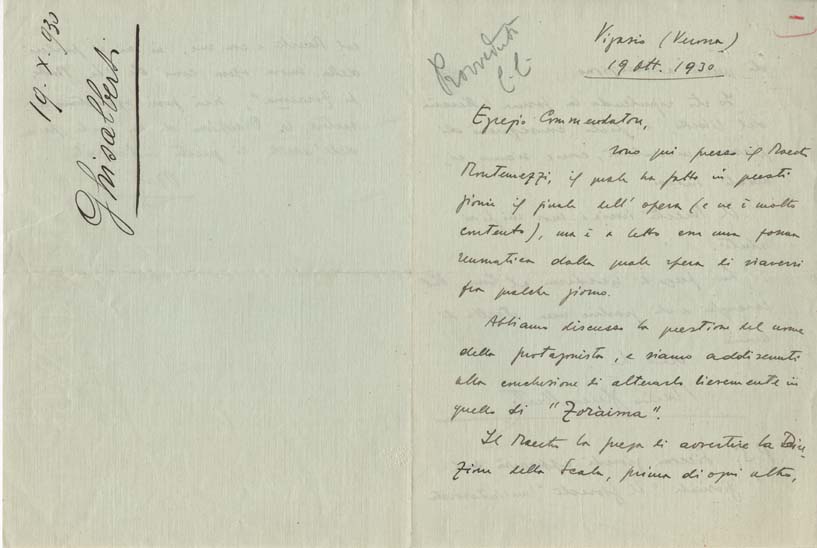 19. X. 930
Ghisalberti
Provveduto
C. C.
Vigasio (Verona)
19 Ott. 1930
Egregio Commendatore,
sono qui presso il Maestro
Montemezzi, il quale ha fatto in questi
giorni il finale dell'opera (e ne è molto
contento), ma è a letto con una forma
reumatica dalla quale spera di riaversi
fra qualche giorno.
Abbiamo discusso la questione del nome
della protagonista, e siamo addivenuti
alla conclusione di alterarlo lievemente in
quello di "Zoraima".
Il Maestro la prega di avvertire la Dire-
zione della Scala, prima di ogni altro,